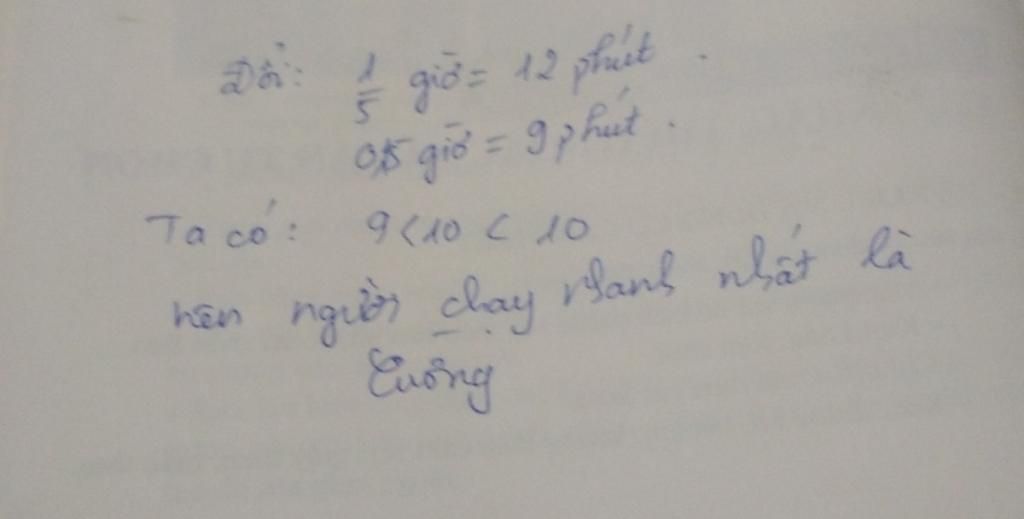 Đổi: 1/5 giờ = 12 phút.
0,15 giờ = 9 phút.
Ta có: 9 < 10 < 10
nên người chạy nhanh nhất là
Cường